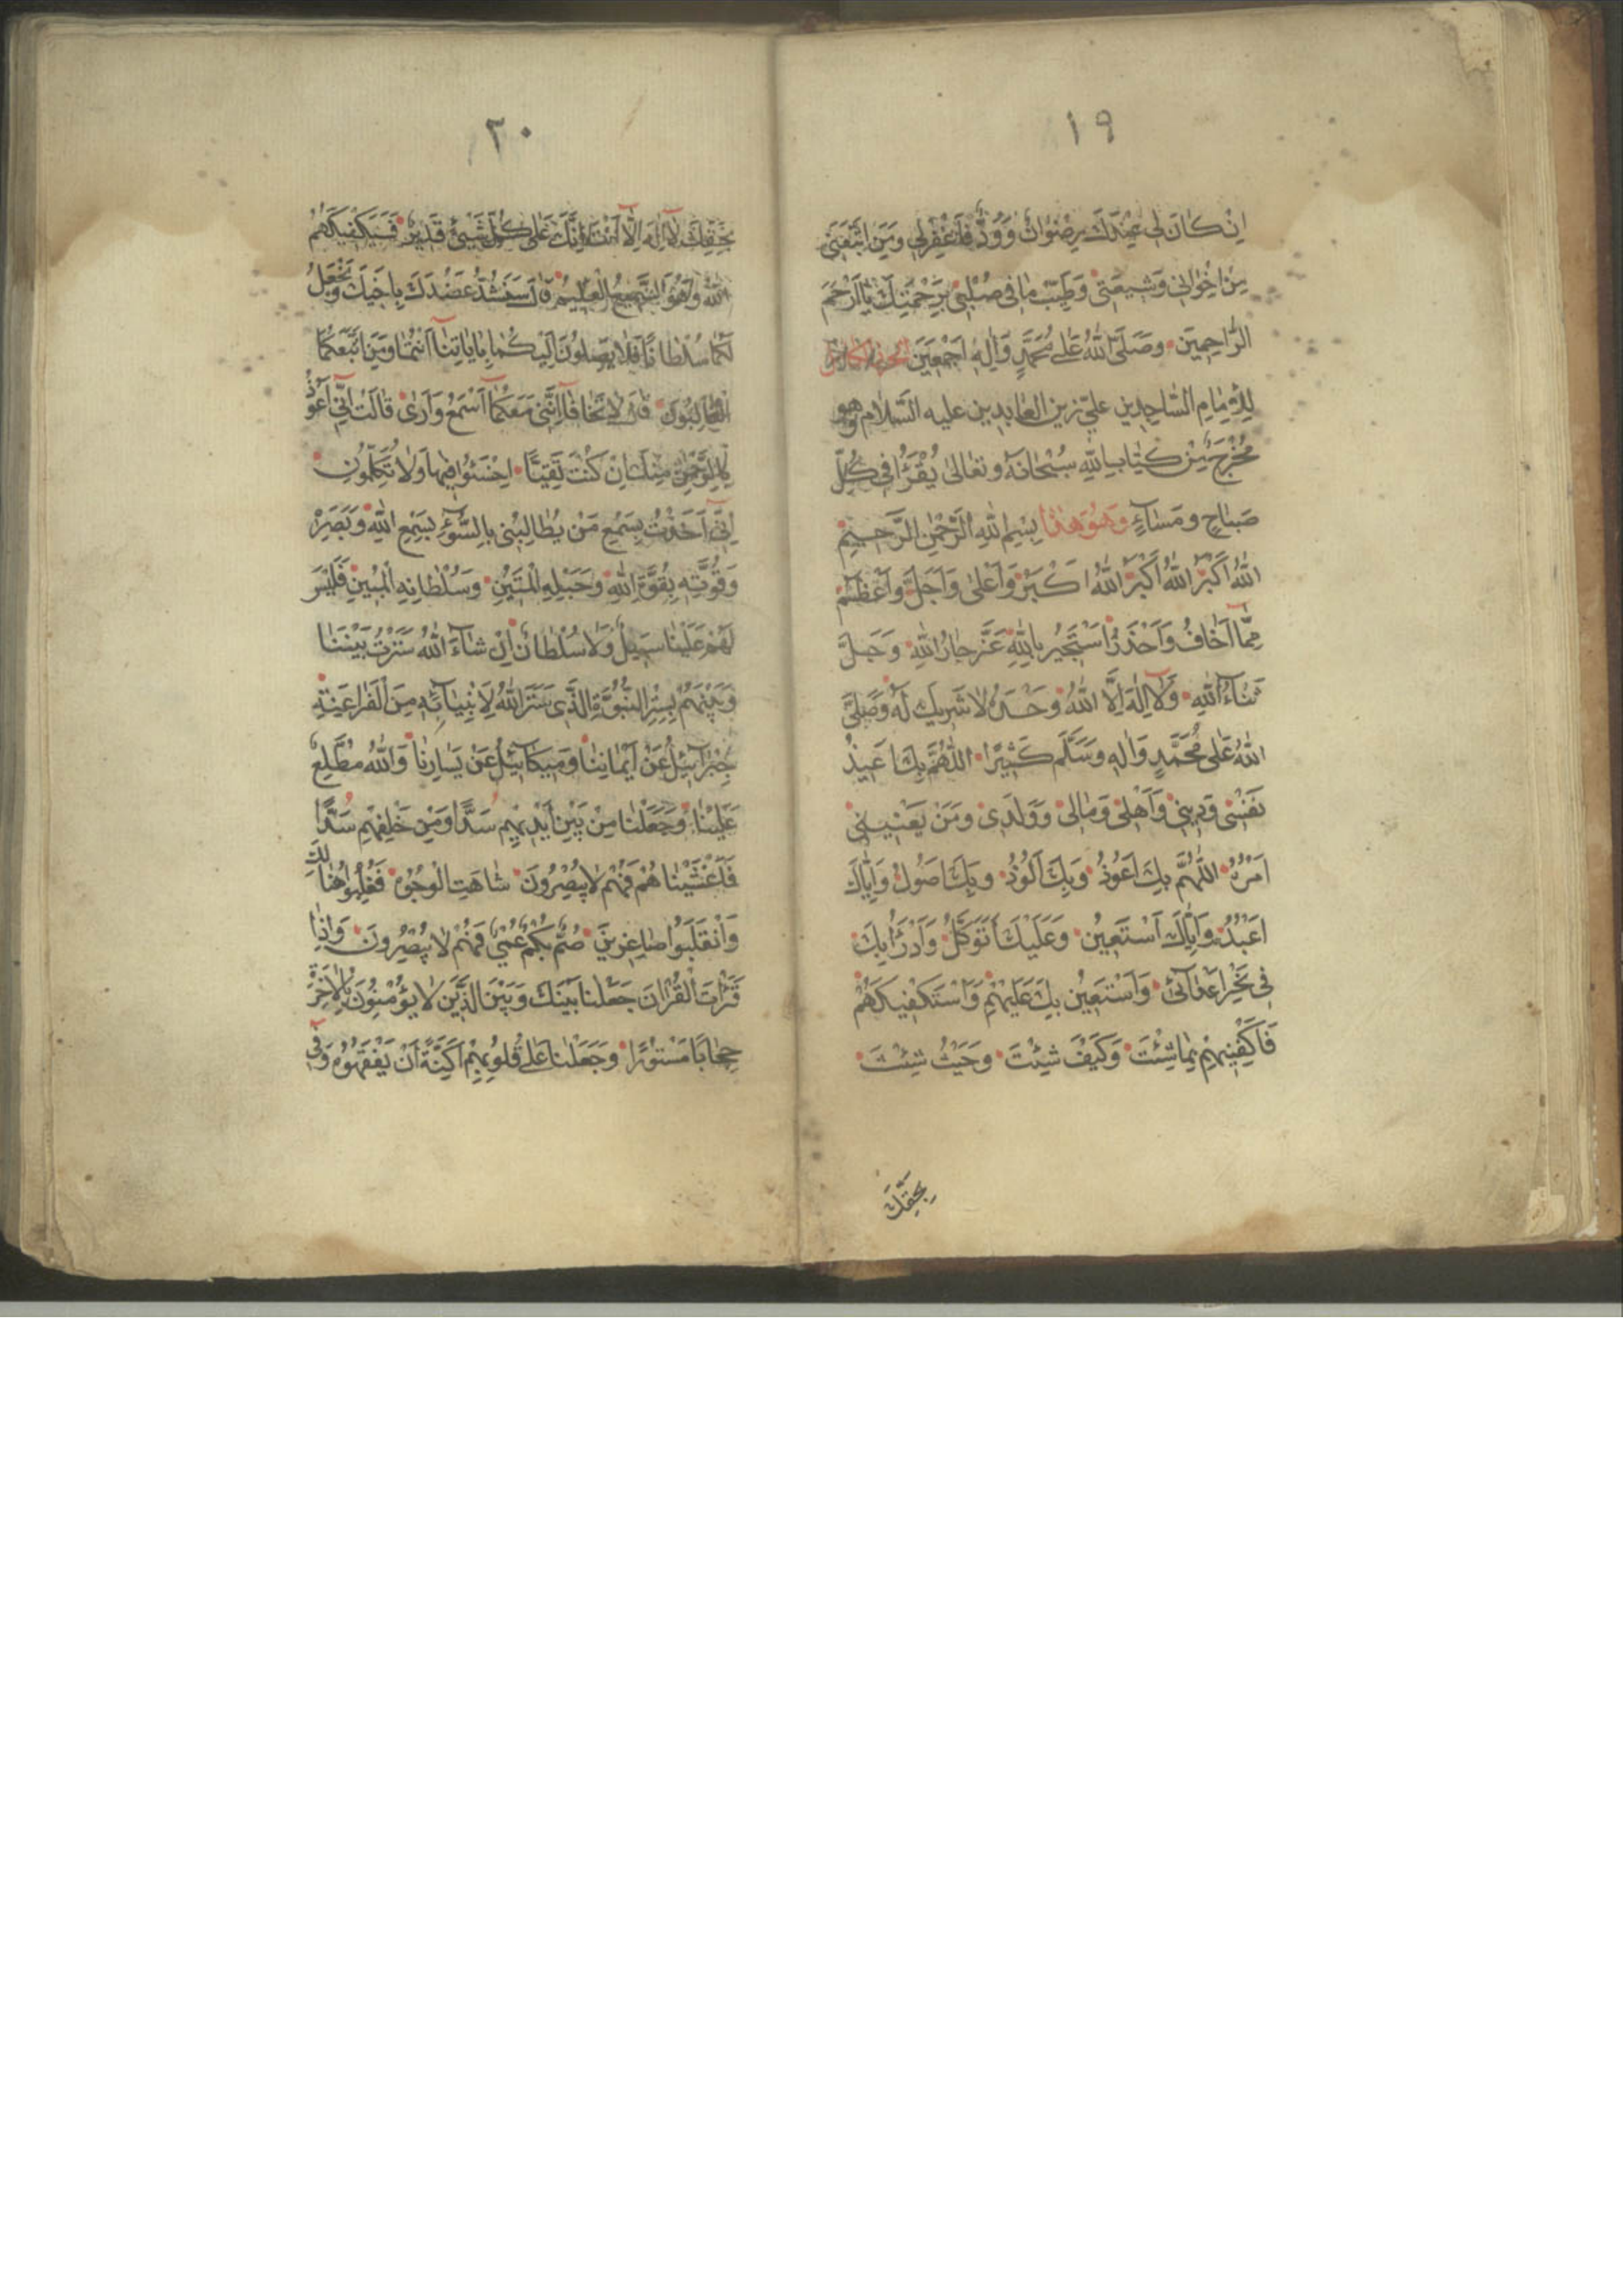 ١٩
اِنْ كٰانَ لى عِنْدَكَ رِضْوٰانٌ وَ وُدٌّ فَاغْفِرْلى وَمَنِ اتَّبَعَنى
مِنْ اِخْوٰانى وَشيعَتى وَطَيِّبْ مٰافى صُلْبى بِرَحْمَتِكَ يٰااَرْحَمَ
الرّٰاحِمينَ وصَلَّى اللّٰهُ عَلٰى مُحَمَّدٍ وَاٰلِهِ اَجْمَعينَ
لِلْاِمٰامِ السّٰاجِدين علىّ زين العٰابدين عليه السّلام وهو
مُخْرَجٌ مِنْ كتٰاب اللّٰهِ سُبْحٰانَهُ وتعٰالىٰ يُقْرَأُ فى كُلِّ
صَبٰاحٍ ومَسٰاءٍ وَهُوَ هٰذا بِسْمِ اللّٰهِ الرَّحْمٰنِ الرَّحيمِ
اللّٰهُ اَكْبَرُ اللّٰهُ اَكْبَرُ اللّٰهُ اَكْبَرُ وَاَعْلىٰ وَاَجَلُّ وَاَعْظَمُ
مِمّٰا اَخٰافُ وَاَحْذَرُ اَسْتَجيرُ بِاللّٰهِ عَزَّ جٰارُ اللّٰهِ وَجَلَّ
ثَنٰاءُ اللّٰهِ وَلٰا اِلٰهَ اِلَّا اللّٰهُ وَحْدَهُ لٰا شَريكَ لَهُ وَصَلَّى
اللّٰهُ عَلٰى مُحَمَّدٍ وَاٰلِهِ وسَلَّمَ كَثيرًا اَللّٰهُمَّ بِكَ اُعيذُ
نَفْسى وَدينى وَاَهْلى وَمٰالى وَوَلَدى وَمَنْ يَعْنينى
اَمْرُهُ اَللّٰهُمَّ بِكَ اَعُوذُ وَبِكَ اَلُوذُ وَبِكَ اَصُولُ وَاِيّٰاكَ
اَعْبُدُ وَاِيّٰاكَ اَسْتَعينُ وَعَلَيْكَ اَتَوَكَّلُ وَاَدْرَأُ بِكَ
فى نَحْرِ اَعْدٰائى وَاَسْتَعينُ بِكَ عَلَيْهِمْ وَاَسْتَكْفيكَهُمْ
فَاكْفِنيهِمْ بِمٰا شِئْتَ وَكَيْفَ شِئْتَ وَحَيْثُ شِئْتَ
بِحَقِّكَ
٢٠
بِحَقِّكَ لٰا اِلٰهَ اِلّٰا اَنْتَ اِنَّكَ عَلٰى كُلِّ شَيْئٍ قَديرٌ فَسَيَكْفيكَهُمُ
اللّٰهُ وَهُوَ السَّميعُ الْعَليمُ قٰالَ سَنَشُدُّ عَضُدَكَ بِاَخيكَ وَنَجْعَلُ
لَكُمٰا سُلْطٰانًا فَلٰا يَصِلُونَ اِلَيْكُمٰا بِاٰيٰاتِنٰا اَنْتُمٰا وَمَنِ اتَّبَعَكُمَا
الْغٰالِبُونَ قٰالَ لٰا تَخٰافٰا اِنَّنى مَعَكُمٰا اَسْمَعُ وَاَرىٰ قٰالَتْ اِنّى اَعُوذُ
بِالرَّحْمٰنِ مِنْكَ اِنْ كُنْتَ تَقِيًّا اِخْسَئُوا فيهٰا وَلٰا تُكَلِّمُونِ
اِنّى اَخَذْتُ بِسَمْعِ مَنْ يُطٰالِبُنى بِالسُّوٓءِ بِسَمْعِ اللّٰهِ وَبَصَرِهِ
وَقُوَّتِهِ بِقُوَّةِ اللّٰهِ وَحَبْلِهِ الْمَتينِ وَسُلْطٰانِهِ الْمُبينِ فَلَيْسَ
لَهُمْ عَلَيْنٰا سَبيلٌ وَلٰا سُلْطٰانٌ اِنْ شٰاءَ اللّٰهُ سَتَرْتُ بَيْنَنٰا
وَبَيْنَهُمْ بِسِتْرِ النُّبُوَّةِ الَّذى سَتَرَ اللّٰهُ لِاَنْبِيٰائِهِ مِنَ الْفَرٰاعِنَةِ
جَبْرٰائيلُ عَنْ اَيْمٰانِنٰا وَميكٰائيلُ عَنْ يَسٰارِنٰا وَاللّٰهُ مُطَّلِعٌ
عَلَيْنٰا وَجَعَلْنٰا مِنْ بَيْنِ اَيْديهِمْ سَدًّا وَمِنْ خَلْفِهِمْ سَدًّا
فَاَغْشَيْنٰاهُمْ فَهُمْ لٰا يُبْصِرُونَ شٰاهَتِ الْوُجُوهُ فَغُلِبُوا هُنٰالِكَ
وَانْقَلَبُوا صٰاغِرينَ صُمٌّ بُكْمٌ عُمْىٌ فَهُمْ لٰا يُبْصِرُونَ وَاِذٰا
قَرَأْتَ الْقُرْاٰنَ جَعَلْنٰا بَيْنَكَ وَبَيْنَ الَّذينَ لٰا يُؤْمِنُونَ بِالْاٰخِرَةِ
حِجٰابًا مَسْتُورًا وَجَعَلْنٰا عَلٰى قُلُوبِهِمْ اَكِنَّةً اَنْ يَفْقَهُوهُ وَفى